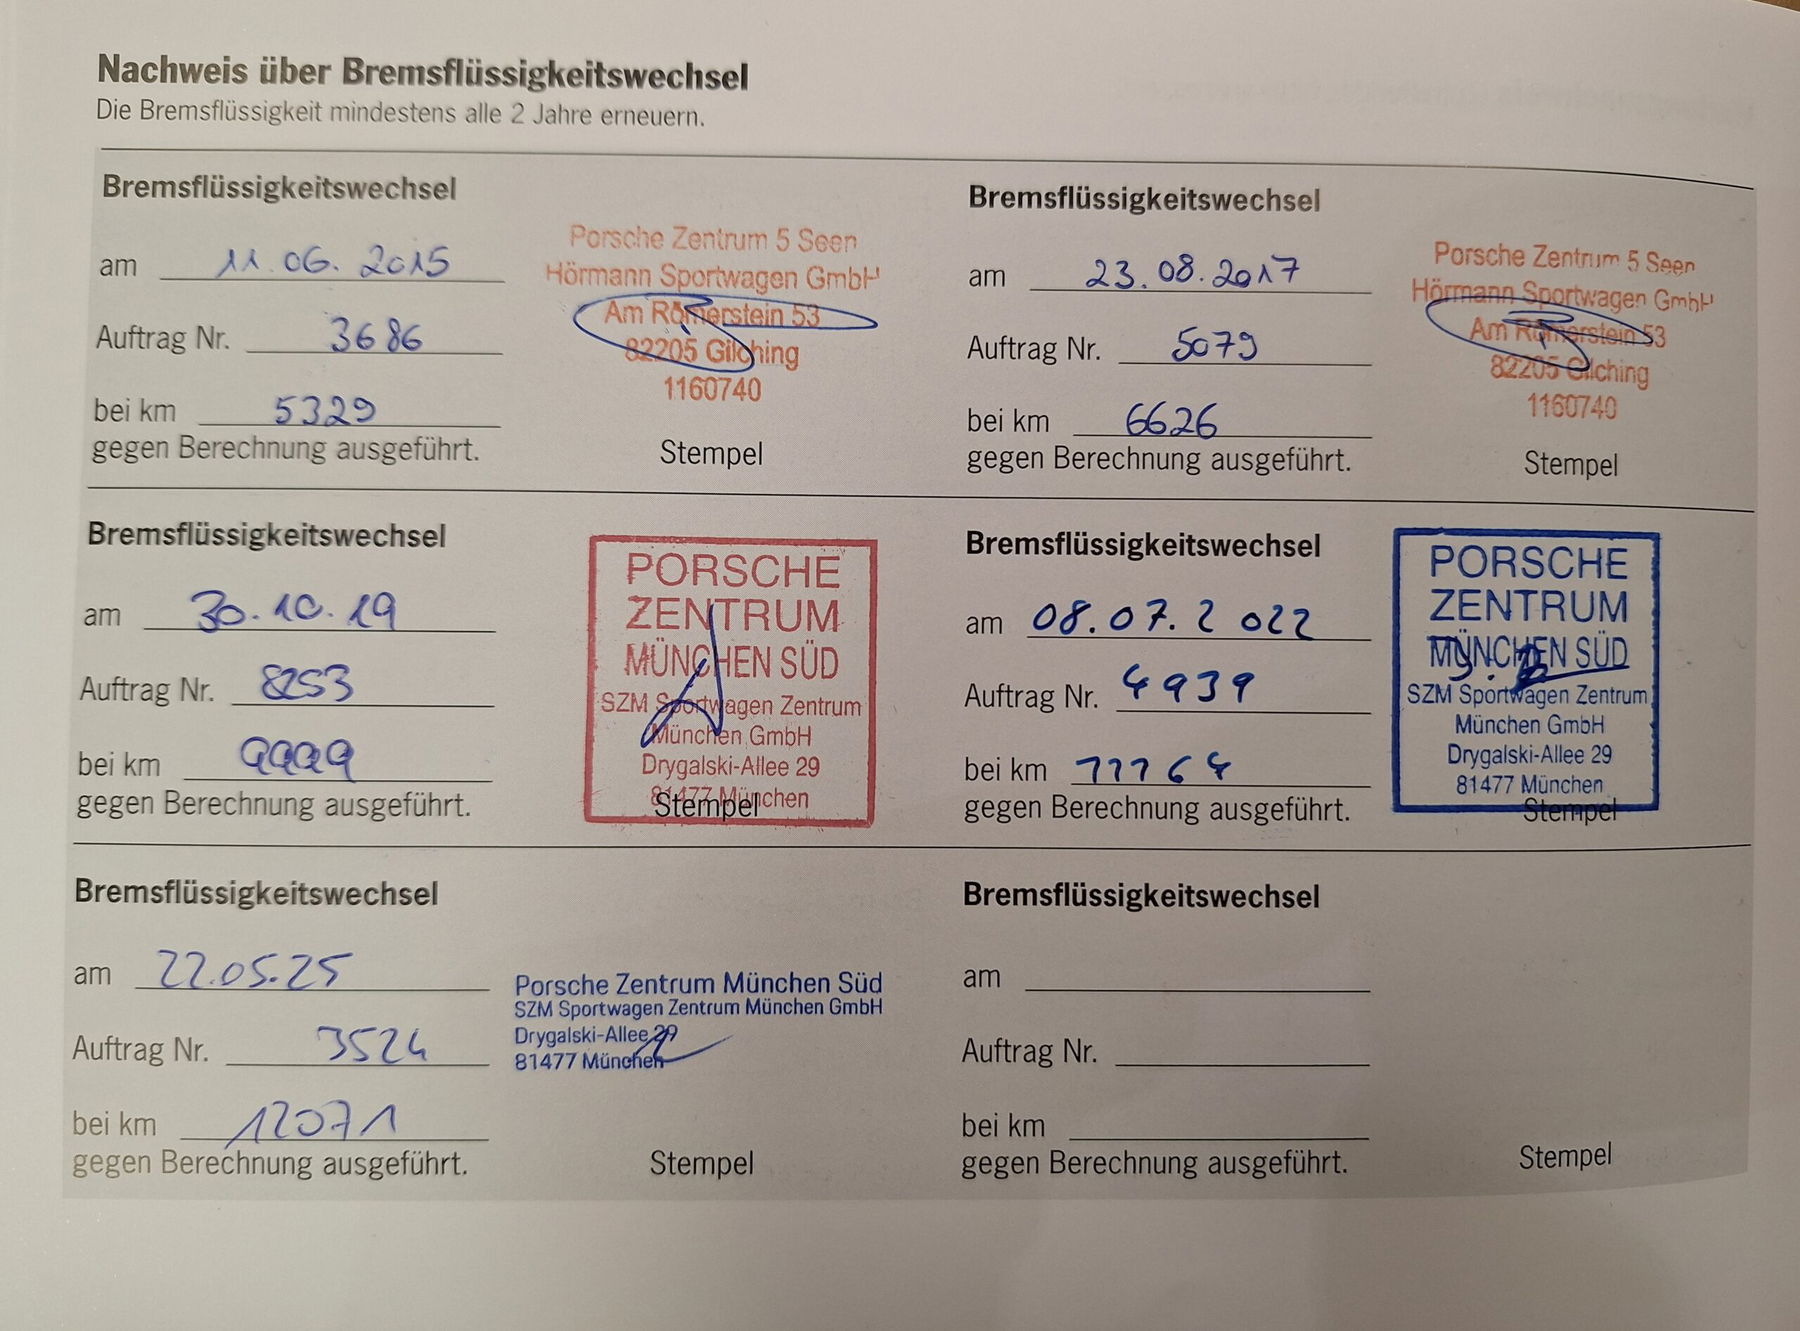 Nachweis über Bremsflüssigkeitswechsel
Die Bremsflüssigkeit mindestens alle 2 Jahre erneuern.
Bremsflüssigkeitswechsel
am 11.06.2015
Auftrag Nr. 3686
bei km 5329
gegen Berechnung ausgeführt.
Porsche Zentrum 5 Seen
Hörmann Sportwagen GmbH
Am Römerstein 53
82205 Gilching
1160740
Stempel
Bremsflüssigkeitswechsel
am 23.08.2017
Auftrag Nr. 5079
bei km 6626
gegen Berechnung ausgeführt.
Porsche Zentrum 5 Seen
Hörmann Sportwagen GmbH
Am Römerstein 53
82205 Gilching
1160740
Stempel
Bremsflüssigkeitswechsel
am 30.10.19
Auftrag Nr. 8253
bei km 9999
gegen Berechnung ausgeführt.
PORSCHE
ZENTRUM
MÜNCHEN SÜD
SZM Sportwagen Zentrum
München GmbH
Drygalski-Allee 29
81477 München
Stempel
Bremsflüssigkeitswechsel
am 08.07.2022
Auftrag Nr. 4939
bei km 11164
gegen Berechnung ausgeführt.
PORSCHE
ZENTRUM
MÜNCHEN SÜD
SZM Sportwagen Zentrum
München GmbH
Drygalski-Allee 29
81477 München
Stempel
Bremsflüssigkeitswechsel
am 22.05.25
Auftrag Nr. 3524
bei km 12071
gegen Berechnung ausgeführt.
Porsche Zentrum München Süd
SZM Sportwagen Zentrum München GmbH
Drygalski-Allee 29
81477 München
Stempel
Bremsflüssigkeitswechsel
am
Auftrag Nr.
bei km
gegen Berechnung ausgeführt.
Stempel